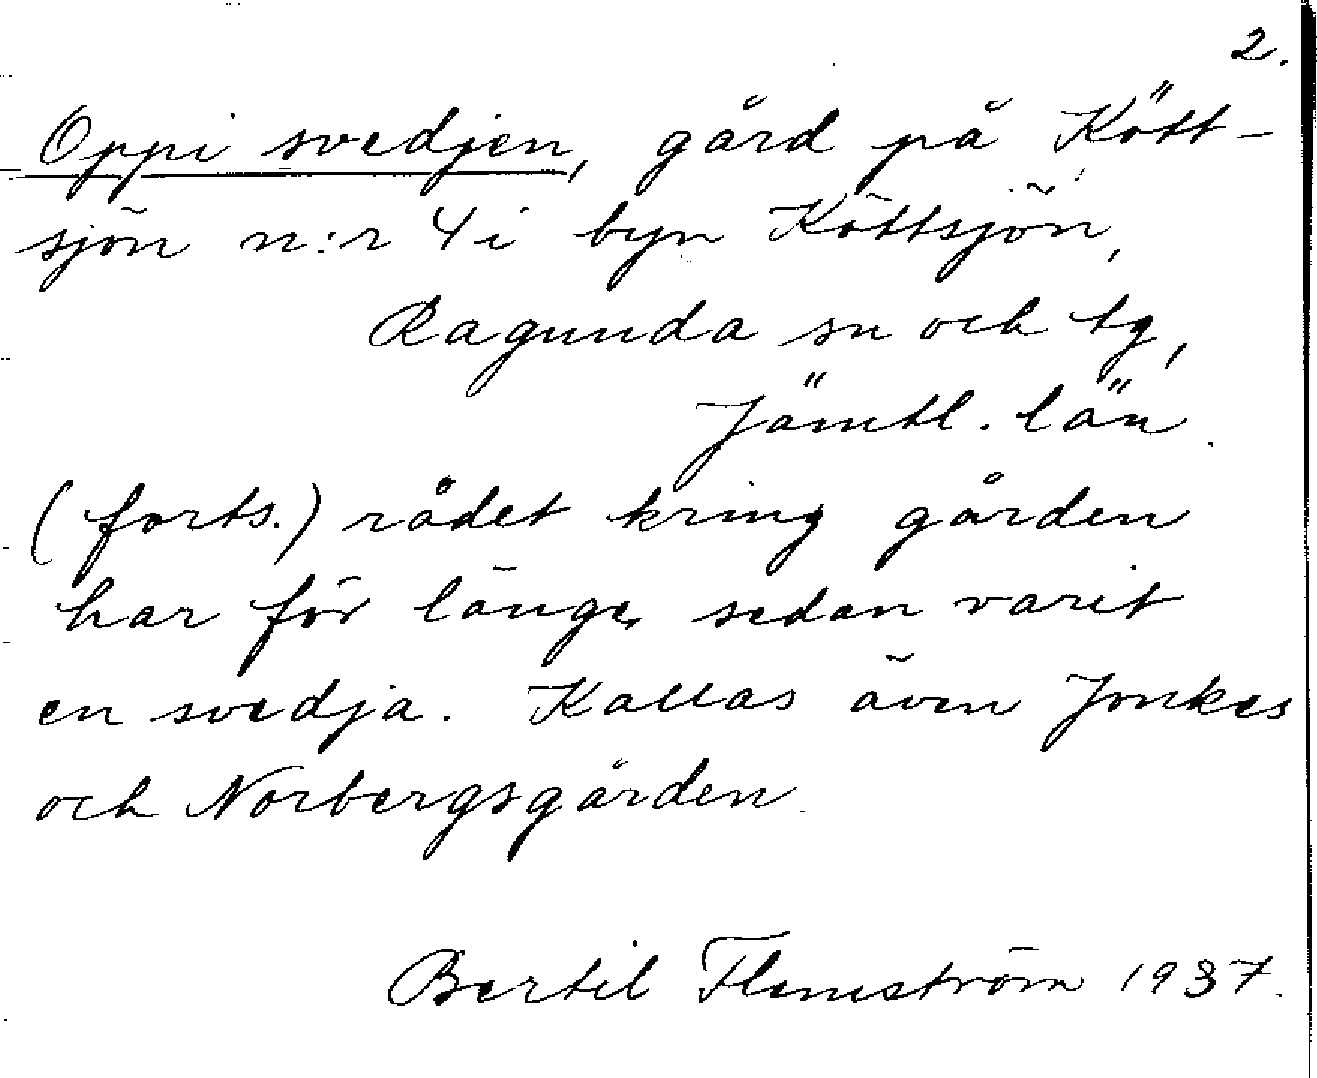 2.
Oppi svedjen, gård på Kött-
sjön n:r 4 i byn Köttsjön,
Ragunda sn och tg,
Jämtl. län.
(forts.) rådet kring gården
har för länge sedan varit
en svedja. Kallas även Jonkes
och Norbergsgården.
Bertil Flemström 1937.